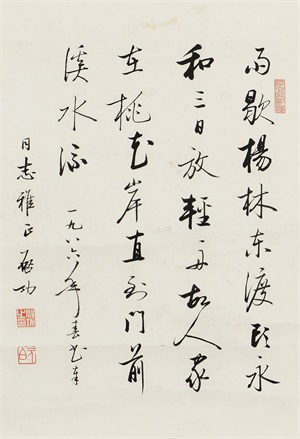 雨歇楊林东渡頭永
和三日放輕舟故人家
在桃花岸直到門前
溪水流 一九八六年春书奉
同志雅正 启功